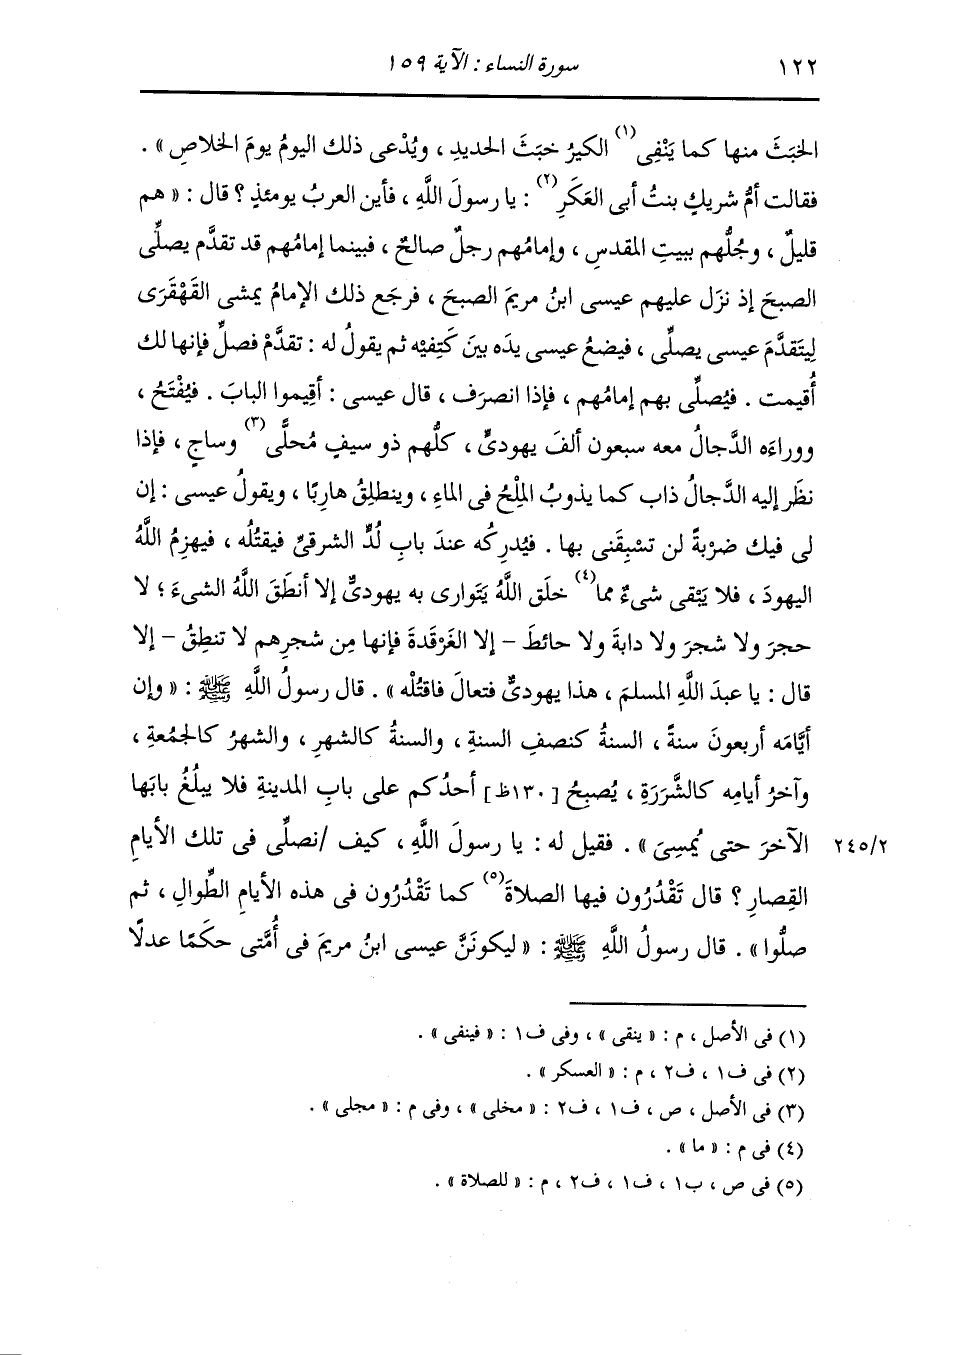 ١٢٢ سورة النساء : الآية ١٥٩
الخبَثَ منها كما يَنْفِى(١) الكيرُ خبَثَ الحديدِ ، ويُدْعى ذلك اليومُ يومَ الخلاصِ » .
فقالت أمُّ شريكٍ بنتُ أبى العَكَرِ(٢) : يا رسولَ اللَّهِ ، فأين العربُ يومئذٍ ؟ قال : « هم
قليلٌ ، وجُلُّهم ببيتِ المقدسِ ، وإمامُهم رجلٌ صالحٌ ، فبينما إمامُهم قد تقدَّم يصلِّى
الصبحَ إذ نزَل عليهم عيسى ابنُ مريمَ الصبحَ ، فرجَع ذلك الإمامُ يمشى القَهْقَرَى
لِيتَقدَّمَ عيسى يصلِّى ، فيضعُ عيسى يدَه بينَ كَتِفيْه ثم يقولُ له : تقدَّمْ فصلِّ فإنها لك
أُقيمت . فيُصلِّى بهم إمامُهم ، فإذا انصرَف ، قال عيسى : أقِيموا البابَ . فيُفْتَحُ ،
ووراءَه الدَّجالُ معه سبعون ألفَ يهودىٍّ ، كلُّهم ذو سيفٍ مُحلًّى(٣) وساجٍ ، فإذا
نظَر إليه الدَّجالُ ذاب كما يذوبُ المِلْحُ فى الماءِ ، وينطلِقُ هاربًا ، ويقولُ عيسى : إن
لى فيك ضرْبةً لن تسْبِقَنى بها . فيُدرِكُه عندَ بابِ لُدٍّ الشرقىِّ فيقتُلُه ، فيهزِمُ اللَّهُ
اليهودَ ، فلا يَبْقى شىءٌ مما(٤) خلَق اللَّهُ يَتوارى به يهودىٌّ إلا أنطَقَ اللَّهُ الشىءَ ؛ لا
حجرَ ولا شجرَ ولا دابةَ ولا حائطَ - إلا الغَرْقَدةَ فإنها مِن شجرِهم لا تنطِقُ - إلا
قال : يا عبدَ اللَّهِ المسلمَ ، هذا يهودىٌّ فتعالَ فاقتُلْه » . قال رسولُ اللَّهِ ﷺ : « وإن
أيَّامَه أربعونَ سنةً ، السنةُ كنصفِ السنةِ ، والسنةُ كالشهرِ ، والشهرُ كالجمُعةِ ،
وآخرُ أيامِه كالشَّرَرَةِ ، يُصبِحُ [١٣٠ظ] أحدُكم على بابِ المدينةِ فلا يبلُغُ بابَها
الآخرَ حتى يُمسِىَ » . فقيل له : يا رسولَ اللَّهِ ، كيف /نصلِّى فى تلك الأيامِ ٢٤٥/٢
القِصارِ ؟ قال تَقْدُرُون فيها الصلاةَ(٥) كما تَقْدُرُون فى هذه الأيامِ الطِّوالِ ، ثم
صلُّوا » . قال رسولُ اللَّهِ ﷺ : « ليكونَنَّ عيسى ابنُ مريمَ فى أُمَّتى حكَمًا عدلًا
(١) فى الأصل ، م : « ينقى » ، وفى ف١ : « فينفى » .
(٢) فى ف١ ، ف٢ ، م : « العسكر » .
(٣) فى الأصل ، ص ، ف١ ، ف٢ : « مخلى » ، وفى م : « مجلى » .
(٤) فى م : « ما » .
(٥) فى ص ، ب١ ، ف١ ، ف٢ ، م : « للصلاة » .